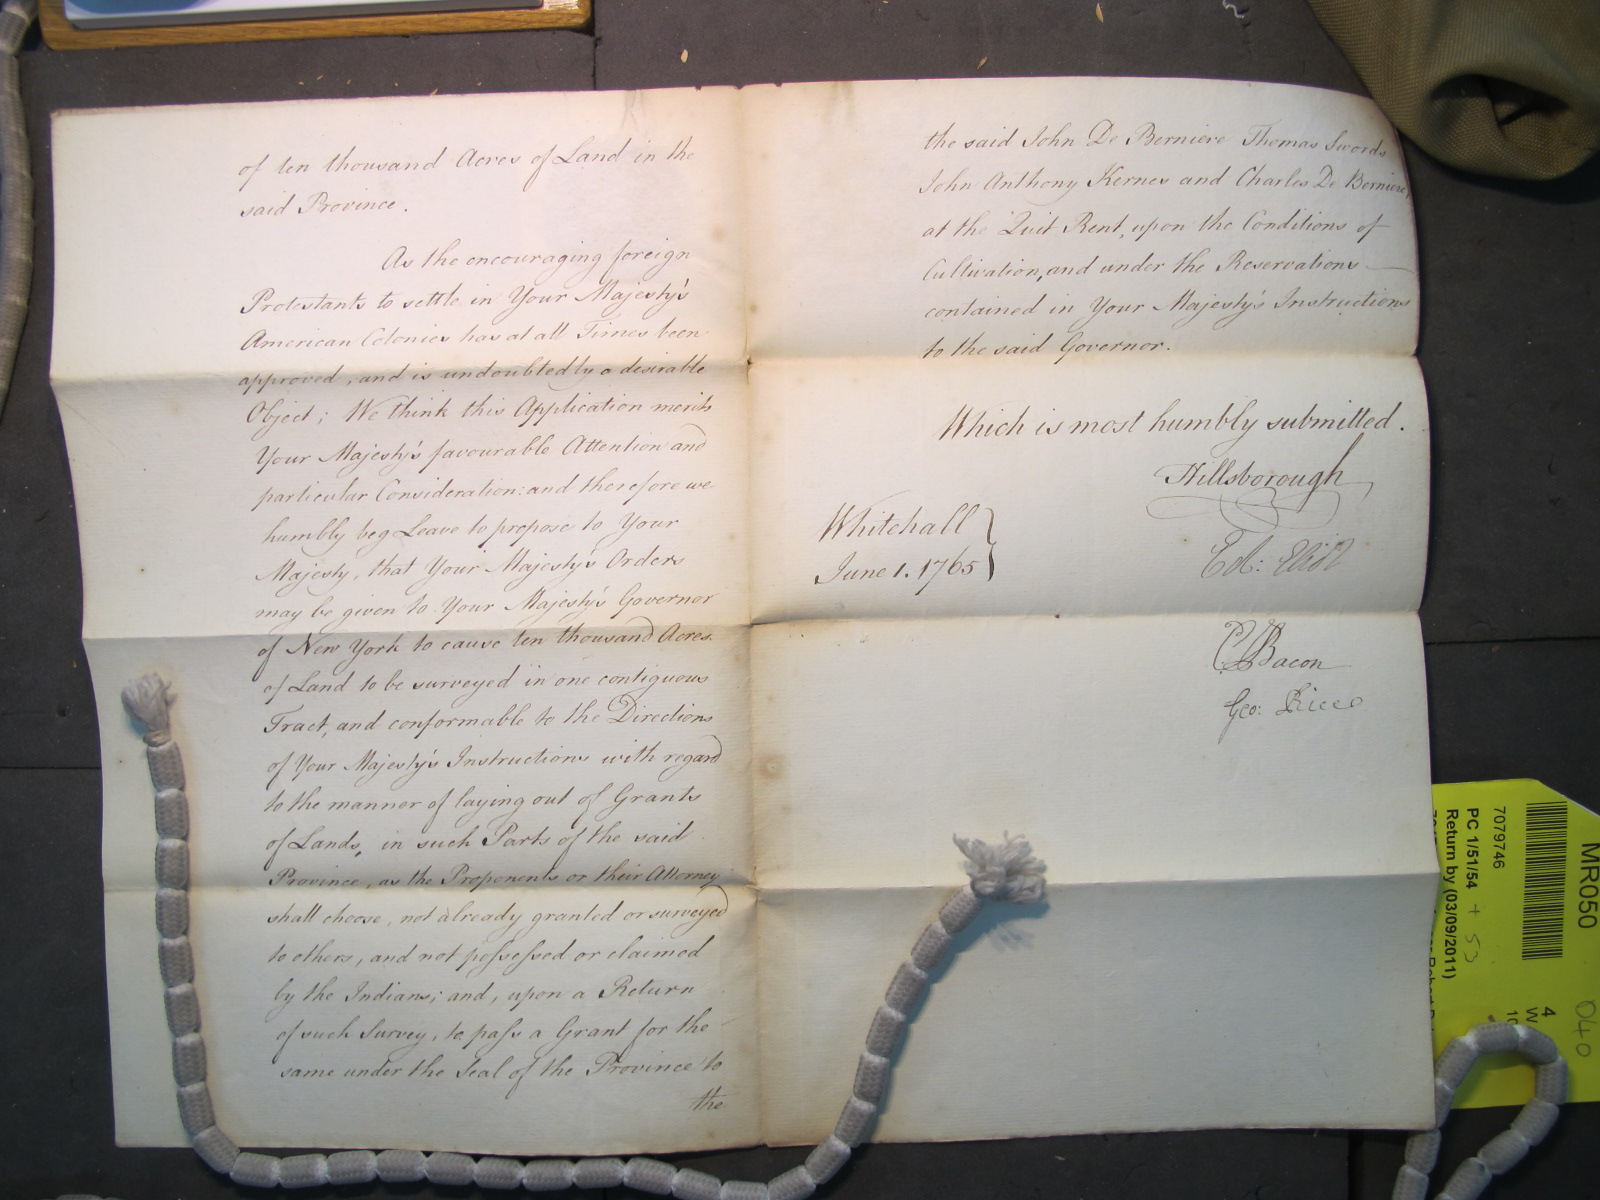 of ten thousand Acres of Land in the
said Province.
As the encouraging foreign
Protestants to settle in Your Majesty's
American Colonies has at all Times been
approved, and is undoubtedly a desirable
Object; We think this Application merits
Your Majesty's favourable Attention and
particular Consideration: and therefore we
humbly beg Leave to propose to Your
Majesty, that Your Majesty's Orders
may be given to Your Majesty's Governor
of New York to cause ten thousand Acres
of Land to be surveyed in one contiguous
Tract, and conformable to the Directions
of Your Majesty's Instructions with regard
to the manner of laying out of Grants
of Lands, in such Parts of the said
Province, as the Proponents or their Attorney
shall choose, not already granted or surveyed
to others, and not possessed or claimed
by the Indians; and, upon a Return
of such Survey, to pass a Grant for the
same under the Seal of the Province to
the
the said John De Berniere Thomas Swords
John Anthony Kernes and Charles De Berniere,
at the Quit Rent, upon the Conditions of
Cultivation, and under the Reservations
contained in Your Majesty's Instructions
to the said Governor.
Which is most humbly submitted.
Hillsborough
Whitehall
June 1. 1765
Ed: Eliot
Bacon
Geo: Rice
MR050
7079746
PC 1/51/54 + 53
Return by (03/09/2011)
040
4
W